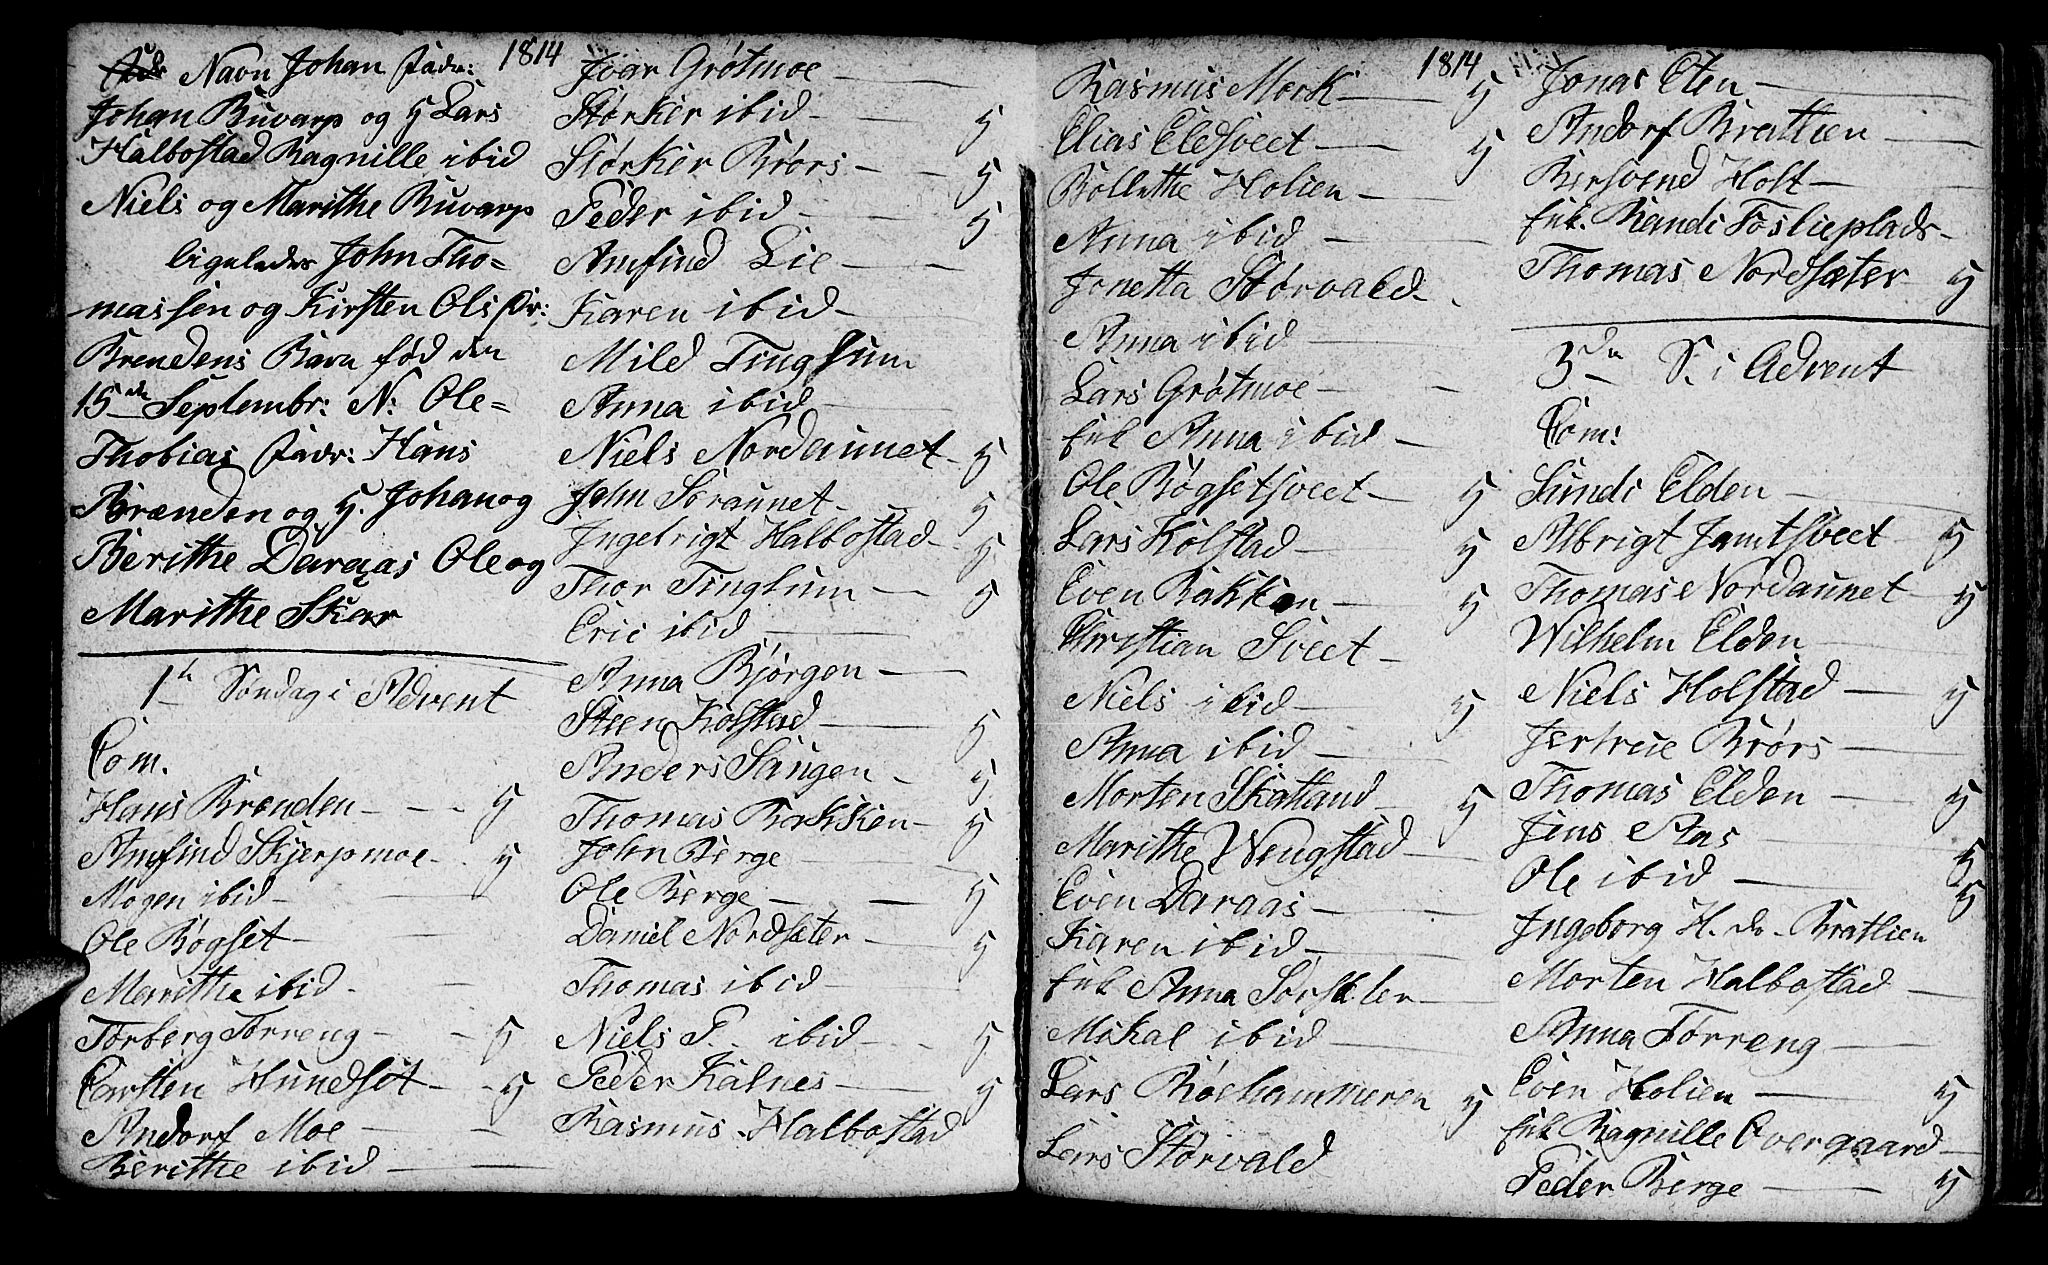 1814
Navn Johan Fadr:
Johan Buvarp og H Lars
Halbostad Ragnille ibid
Niels og Marithe Buvarp
ligeledes John Tho=
massen og Kirsten Olsdr:
Brendens Barn fød den
15de Septembr: N: Ole=
Thobias Fadr: Hans
Brænden og H. Johan og
Berithe Daraas Ole og
Marithe Skar
1ste Søndag i Advent
Com.
Hans Brenden - - - H
Arnfind Skjerpmoe - H
Mogen ibid -
Ole Bøgset -
Marithe ibid -
Torberg Torreng - - H
Carsten Hundset - - H
Andorf Moe - -
Berithe ibid - -
Ivar Grøtmoe -
Størker ibid - H
Størker Brørs - - H
Peder ibid - - H
Arnfind Lie - -
Karen ibid -
Mild Tinglum
Anna ibid -
Niels Nordaunet - H
John Soraunet - H
Ingebrigt Halbostad - H
Thor Tinglum - H
Eric ibid -
Anna Bjørgen -
Steen Kolstad - H
Anders Saugen - H
Thomas Bakken - H
John Berge -
Ole Berge - - H
Daniel Nordseter - H
Thomas ibid -
Niels P. ibid - - H
Peder Kalnes - H
Rasmus Halbostad
1814
Rasmus Mork - H
Elias Eldsveet - H
Bollethe Holien -
Anna ibid -
Jonetta Størvald -
Anna ibid -
Lars Grøtmoe - -
fuk Anna ibid -
Ole Bøgsetsveet - H
Lars Kolstad - H
Even Bakken - H
Christian Sveet -
Niels ibid - H
Anna ibid -
Morten Skatland - H
Marithe Wengstad -
Even Daraas -
Karen ibid -
fuk Anna Sorseter -
Mikal ibid -
Lars Bøehammeren H
Lars Størvald
Jonas Eten -
Andorf Bratlien -
Bersvend Holt -
fuk. Randi Foslieplads -
Thomas Nordsæter - H
3de S. i Advent
Com:
Sundi Elden -
Albrigt Jamtsveet - H
Thomas Nordaunet - H
Wilhelm Elden -
Niels Holstad - H
Jertrue Brørs -
Thomas Elden - H
Jens Aas - H
Ole ibid - H
Ingeborg H. d. - Bratlien
Morten Halbostad -
Anna Torreng -
Even Holien - H
fuk Ragnille Overgaard -
Peder Berge - H